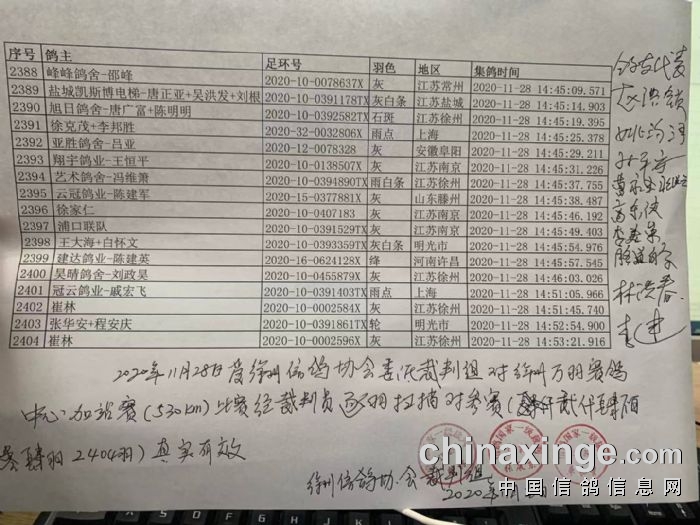 序号 鸽主 足环号 羽色 地区 集鸽时间
2388 峰峰鸽舍-邵峰 2020-10-0078637X 灰 江苏常州 2020-11-28 14:45:09.571
2389 盐城凯斯博电梯-唐正亚+吴洪发+刘根 2020-10-0391178TX 灰白条 江苏盐城 2020-11-28 14:45:14.903
2390 旭日鸽舍-唐广富+陈明明 2020-10-0392582TX 石斑 江苏徐州 2020-11-28 14:45:19.395
2391 徐克茂+李邦胜 2020-32-0032806X 雨点 上海 2020-11-28 14:45:25.378
2392 亚胜鸽舍-吕亚 2020-12-0078328 灰 安徽阜阳 2020-11-28 14:45:29.211
2393 翔宇鸽业-王恒平 2020-10-0138507X 灰 江苏南京 2020-11-28 14:45:31.226
2394 艺术鸽舍-冯维箫 2020-10-0394890TX 雨白条 江苏徐州 2020-11-28 14:45:37.755
2395 云冠鸽业-陈建军 2020-15-0377881X 灰 山东滕州 2020-11-28 14:45:38.487
2396 徐家仁 2020-10-0407183 灰 江苏南京 2020-11-28 14:45:46.192
2397 浦口联队 2020-10-0391529TX 灰 江苏南京 2020-11-28 14:45:49.403
2398 王大海+白怀文 2020-10-0393359TX 灰白条 明光市 2020-11-28 14:45:54.976
2399 建达鸽业-陈建英 2020-16-0624128X 绛 河南许昌 2020-11-28 14:45:57.545
2400 昊晴鸽舍-刘政昊 2020-10-0455879X 灰 江苏徐州 2020-11-28 14:46:03.026
2401 冠云鸽业-戚宏飞 2020-10-0391403TX 雨点 上海 2020-11-28 14:51:05.966
2402 崔林 2020-10-0002584X 灰 江苏徐州 2020-11-28 14:51:45.740
2403 张华安+程安庆 2020-10-0391861TX 轮 明光市 2020-11-28 14:52:54.900
2404 崔林 2020-10-0002596X 灰 江苏徐州 2020-11-28 14:53:21.916
2020年11月28日受徐州信鸽协会委派裁判组对徐州万羽赛鸽
中心加站赛(530km)比赛经裁判员逐羽扫描对参赛(
羽2404羽)真实有效
徐州信鸽协会裁判组
2020年
chinaxinge.com
中国信鸽信息网